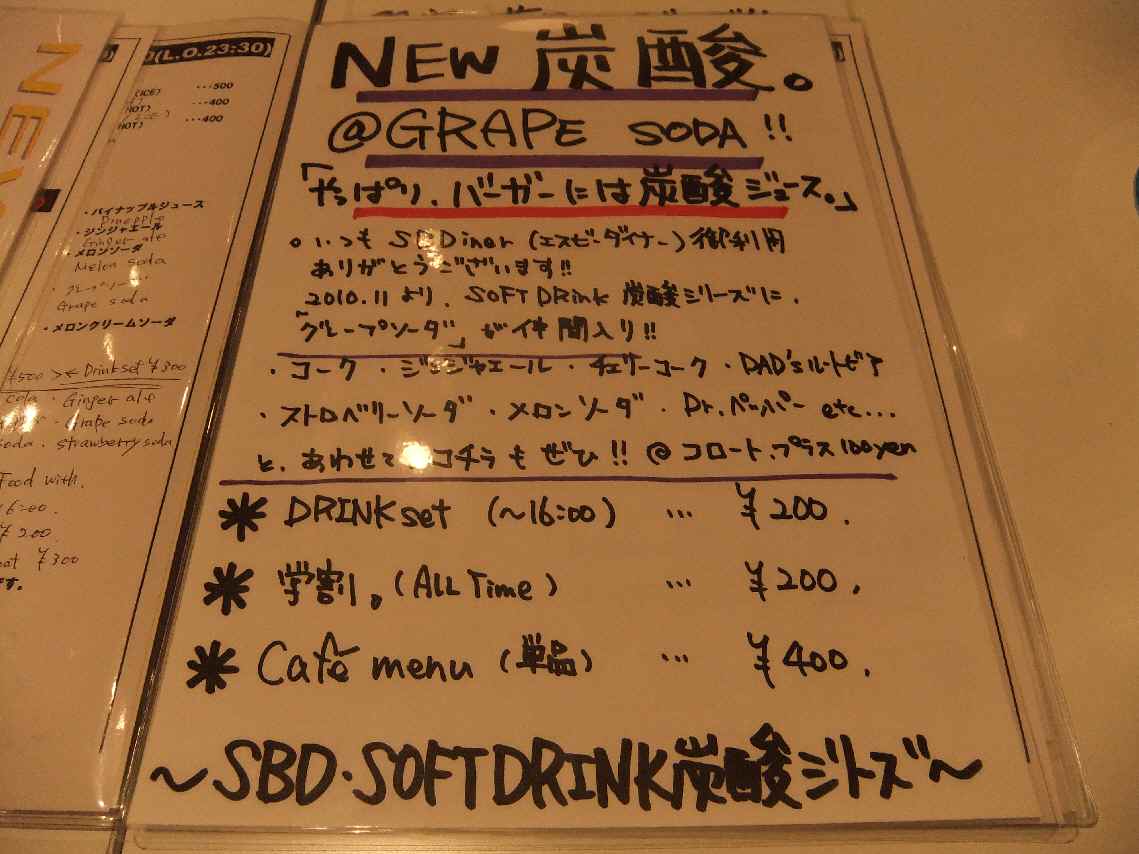 NEW 炭酸。
@GRAPE SODA!!
「やっぱり、バーガーには炭酸ジュース。」
。いつも SBDiner (エスビーダイナー) 御利用
ありがとうございます!!
2010.11 より、SOFT DRink 炭酸シリーズに、
「グレープソーダ」が仲間入り!!
・コーク ・ジンジャエール ・チェリーコーク ・DAD'sルートビア
・ストロベリーソーダ ・メロンソーダ ・Dr.ペーパー etc...
と、あわせて コチラもぜひ!! @フロート、プラス100yen
＊ DRINKset (～16:00) … ¥200.
＊ 学割。(ALL Time) … ¥200.
＊ Café menu (単品) … ¥400.
～SBD・SOFTDRINK炭酸シリーズ～
NEW
(L.O.23:30)
(ICE) …500
…400
HOT) …400
HOT)
・パイナップルジュース
Pineapple
・ジンジャエール
Ginger ale
・メロンソーダ
Melon soda
・グレープソーダ
Grape soda
・メロンクリームソーダ
¥500 > ← Drinkset ¥300
cola ・Ginger ale
・Grape soda
soda ・strawberry soda
Food with.
16:00.
¥200.
¥300
です。